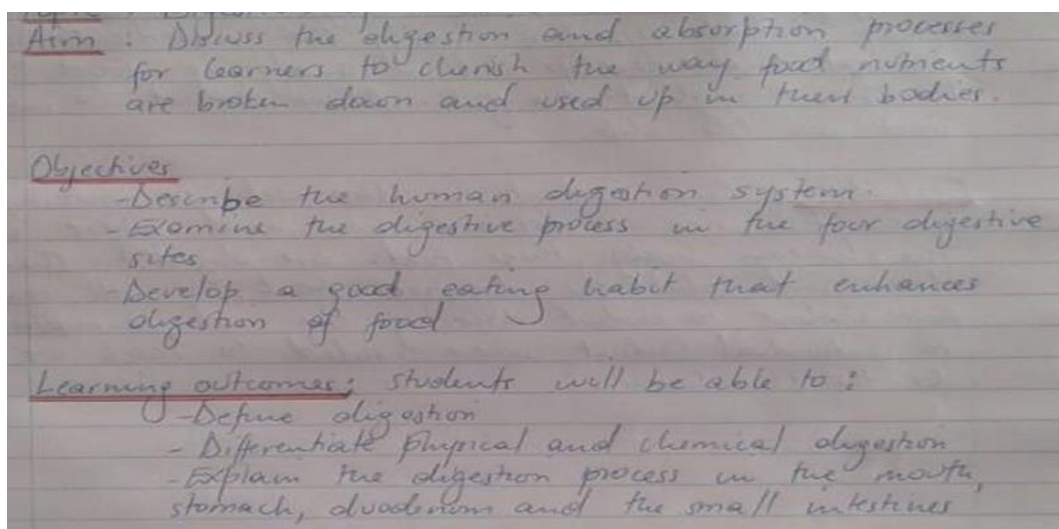 Aim : Discuss the digestion and absorption processes
for learners to cherish the way food nutrients
are broken down and used up in their bodies.
Objectives
-Describe the human digestion system.
-Examine the digestive process in the four digestive
sites
-Develop a good eating habit that enhances
digestion of food
Learning outcomes; students will be able to :
-Define digestion
- Differentiate physical and chemical digestion
-Explain the digestion process in the mouth,
stomach, duodenum and the small intestines